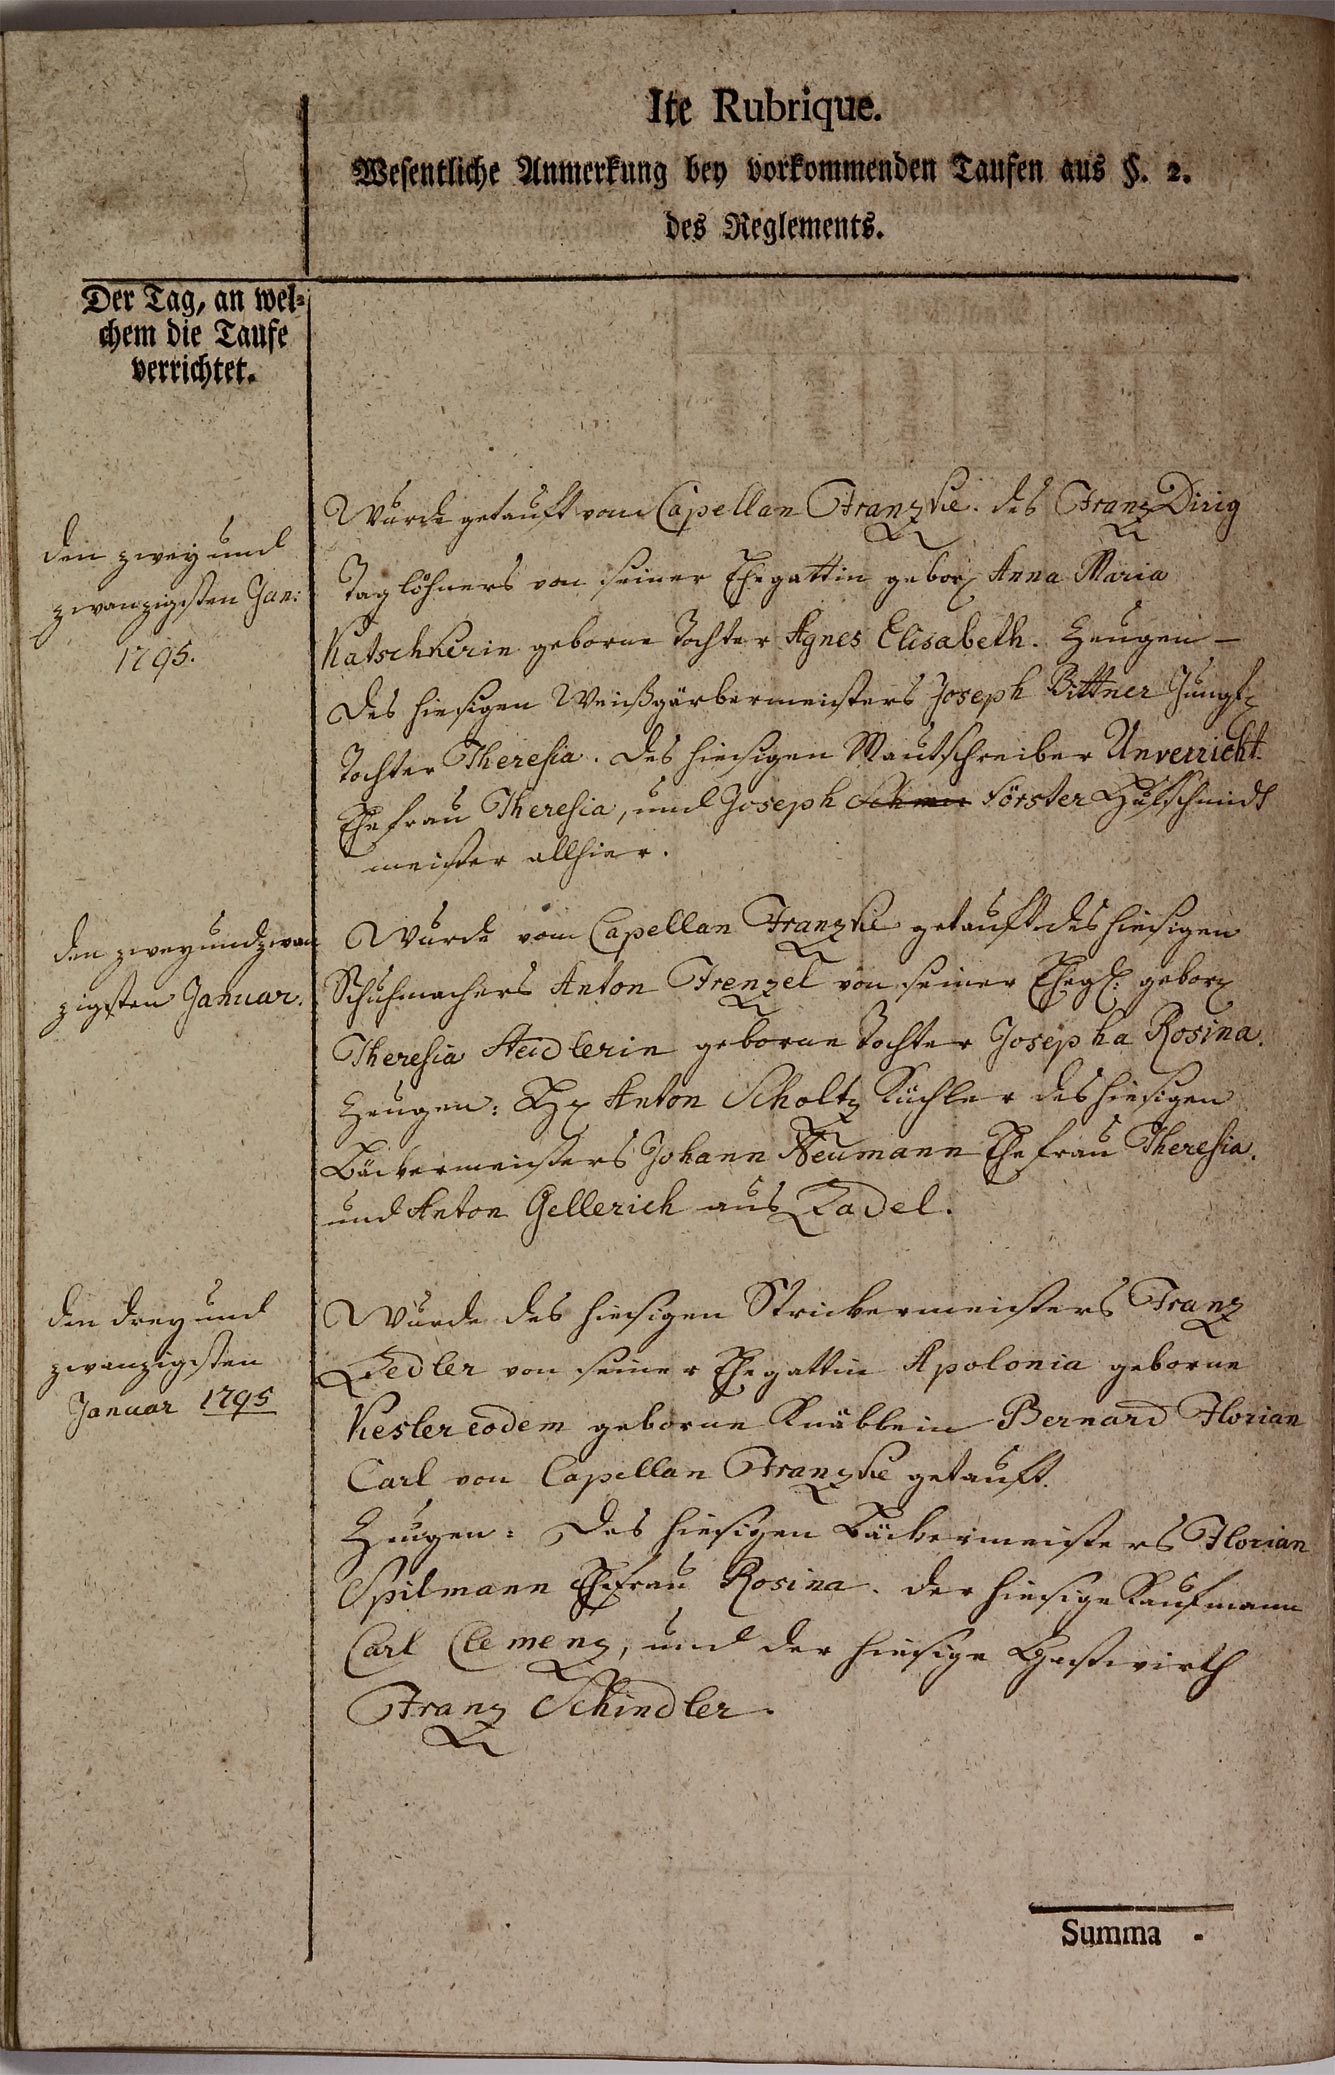 Ite Rubrique.
Wesentliche Anmerkung bey vorkommenden Taufen aus §. 2.
des Reglements.
Der Tag, an wel-
chem die Taufe
verrichtet.
den zwey und
zwanzigsten Jan:
1795.
Wurde getauft vom Capellan Franzkie. des Franz Dirig
Taglöhners von seiner Ehegattin gebor Anna Maria
Katschkerin geborne Tochter Agnes Elisabeth. Zeugen –
des hiesigen Weißgärbermeisters Joseph Bittner Jungf
Tochter Theresia. des hiesigen Mautschreiber Unverricht.
Ehefrau Theresia, und Joseph Förster Hufschmidt
meister allhier.
den zwey und zwan
zigsten Januar.
Wurde vom Capellan Franzkie getauft des hiesigen
Schuhmachers Anton Frenzel von seiner Eheg: gebor
Theresia Heidlerin geborne Tochter Josepha Rosina.
Zeugen: H Anton Scholtz Küchler des hiesigen
Bäckermeisters Johann Neumann Ehefrau Theresia.
und Anton Gellerich aus Zadel.
den drey und
zwanzigsten
Januar 1795
Wurde des hiesigen Strickermeisters Franz
Zedler von seiner Ehegattin Apolonia geborne
Kesler eodem geborne Knäblein Bernard Florian
Carl von Capellan Franzkie getauft.
Zeugen: Des hiesigen Bäckermeisters Florian
Spilmann Ehefrau Rosina. der hiesige Kaufmann
Carl Clemenz, und der hiesige Gastwirth
Franz Schindler.
Summa -